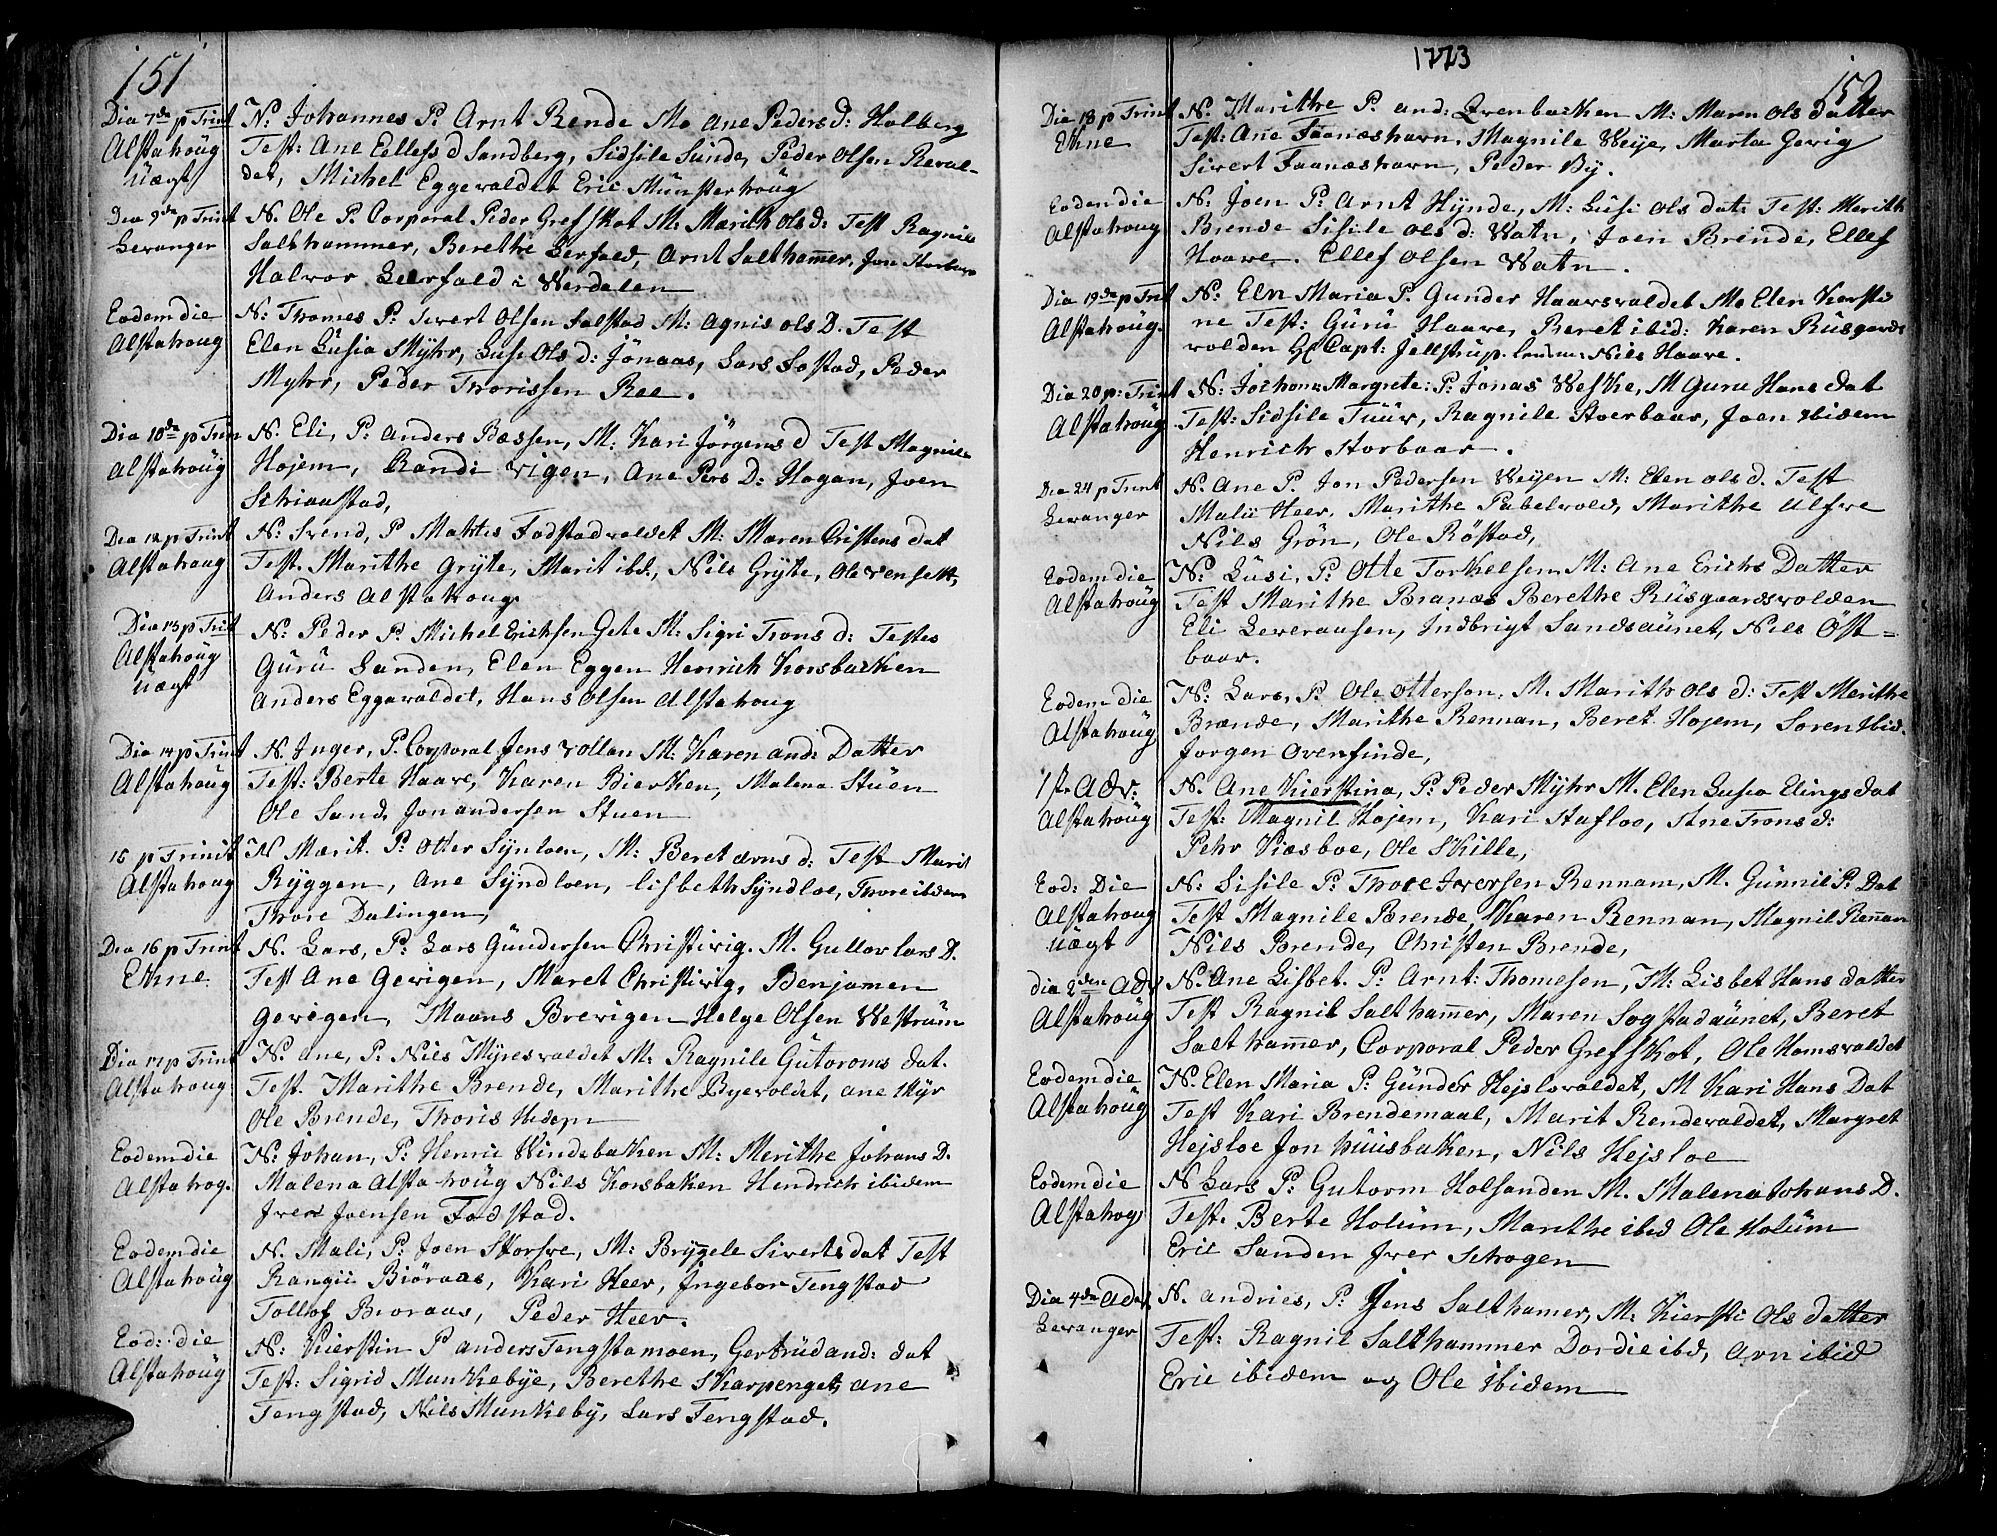 151
Dia 7de p Trint N. Johannes P. Arnt Rende Mo Ane Peders d: Holberg
Alstahoug Test: Ane Eellefs d Sandberg, Sidsile Sunde, Peder Olsen Reval-
Uægt det, Michel Eggevaldet Eric Münsterhoug
Dia 9de p Trint N. Ole P. Corporal Peder Grefskot M. Marith Ols d: Test Ragnile
Levanger Salthammer, Berethe Lerfald, Arnt Salthammer, Jon
Halvor Leerfald i Werdalen
Eodem die N: Thomes P: Siwert Olsen Salstad M: Agnis Ols D. Test
Alstahoug Elen Lusia Myhr, Lusi Ols d: Jönaas, Lars Sostad, Peder
Myhr, Peder Thorissen Ree.
Dia 10de p Trin N. Eli, P: Anders Bassen, M. Kari Jörgens d Test Magnile
Alstahoug Hojem, Randi Vigen, Ane Pers D: Hogan, Joen
Schiaastad,
Dia 12 p Trint N: Svend, P Mahtis Fodstadvaldet M: Maren Cristens dat
Alstahoug Test. Marithe Gryte, Marit ibd, Nils Gryte, Ole
Anders Alstahoug
Dia 13 p Trit N: Peder P. Michel Ericksen Gete M: Sigri Trons d: Testes
Alstahoug Guru Sanden, Elen Eggen Henrich Korsbacken
Uægt Anders Eggavaldet, Hans Olsen Alstahoug
Dia 14 p Trint N. Inger, P. Corporal Jens Vollan M: Karen And: Datter
Alstahoug Test: Berte Haave, Karen Bierken, Malena Stüen
Ole Sand, Jon Andersen Stuen
15 p Trinit N Mærit. P: Otter Synloen, M: Beret Arns d: Test Marit
Alstahoug Ryggen, Ane Syndloen, Lisbeth Syndloe, Thore ibdem
Thore Dalingen,
Dia 16 p Trint N. Lars, P. Lars Gundersen Christivig. M. Gullov Lars D.
Ekne Test Ane Gevigen, Maret Christivig, Benjamen
Gevigen, Maans Brevigen Helge Olsen Westrüm
Dia 17 p Trint N. Ane, P. Nils Myresvaldet M: Ragnile Gutoroms dat.
Alstahoug Test. Marithe Brende, Marithe Byevoldet, Ane Myr
Ole Brende, Thoris
Eodem die N: Johan, P: Henric Windebakken M: Merithe Johans D.
Alstahog. Malena Alstahoug Nils Korsbaken Hendrich ibidem
Iver Joensen Fodstad.
Eodem die N. Mali, P: Joen Storsve, M: Bryngele Siverts dat Test
Alstahoug Rangii Biöraas, Kari Heer, Ingebor Tengstad
Tollof Bioraas, Peder Heer.
Eod: die N: Kierstin P Anders Tengstamoen, Gertrud And: dat
Alstahoug Test: Sigrid Munkebye, Berethe Skarpenget, Ane
Tengstad, Nils Munkeby, Lars Tengstad.
1773
152
Dia 18 p Trint N. Marithe P. And: Evenbacken M: Maren Ols datter
Ekne Test: Ane Faanæshavn, Magnile Weye, Marta Gevig
Sivert Faanæshavn, Peder By.
Eodem die N: Joen P: Arnt Hynde, M: Lusi Ols dat: Test: Merith
Alstahoug Brende Sisile Ols d: Watn, Joen Brende, Ellef
Haave. Ellef Olsen Watn.
Dia 19de p Trit N: Eln Maria P. Gunder Haavsvaldet Mo Elen Kiersti
Alstahoug. ne Test: Guru Haave, Beret ibid: Karen Rüsgaards
volden Capt: Jellstrup. Nils Haave.
Dia 20 p: Trint N: Johana Margrete: P: Jonas Weske, M Guru Hans dat
Alstahoug Test: Sidsile Tuur, Ragnile Storbaar, Joen ibidem
Henrich Storboar.
Dia 24 p Trint N. Ane P. Jon Pedersen Weyen M: Elen Ols d. Test
Levanger Malii Heer, Marithe Pabelvold, Marithe Ulfve
Nils Grön, Ole Röstad,
Eodem die N: Lusi, P: Otte Torkelsen M: Ane Erichs Datter
Alstahoug Test Marithe Branæs Berethe Rüsgaardsvolden
Eli Leverausen, Indbrigt Sandsaünet, Nils Öst=
boar.
Eodem die N: Lars, P. Ole Otterson, M. Marith Ols d: Test Merithe
Alstahoug Brænde, Marithe Rennan, Beret Hojem, Soren ibid.
Jorgen Overfinde,
1ste Adv. N. Ane Kierstina, P: Peder Myhr M. Elen Lusia Elings dat
Alstahoug Test: Magnil Hojem, Kari Stafloe, Ane Trons d:
Pehr Kiæsboe, Ole Skille,
Eod: Die N: Sisile P: Thore Iversen Rennam, M. Gunnil P: Dat
Alstahoug Test Magnile Brende Karen Rennan, Magnil Rennan
Uægt Nils Brende, Christen Brende,
dia 2den Adv N. Ane Lisbet. P: Arnt: Thomesen, M: Lisbet Hans datter
Alstahoug Test Ragnil Salthammer, Maren Sogstadaünet, Beret
Salthammer, Corporal Peder Grefskot, Ole Homsvaldet
Eodem die N. Elen Maria P: Günder Hejslovaldet, M Kari Hans Dat
Alstahoug Test Kari Brendemaal, Marit Rendevaldet, Margret
Hejsloe Jon Huusbaken, Nils Hejsloe
Eodem die N Lars P: Gutorm Holsanden M. Malena Johans D.
Alstahog Test. Berte Holüm, Marithe ibid Ole Holüm
Eric Sanden Iver Schogen
Dia 4de Advt N. Andries, P: Jens Salthamer, M: Kiersti Ols datter
Levanger Test: Ragnil Salthammer Dordie ibd, Arn ibid
Eric ibidem og Ole ibidem